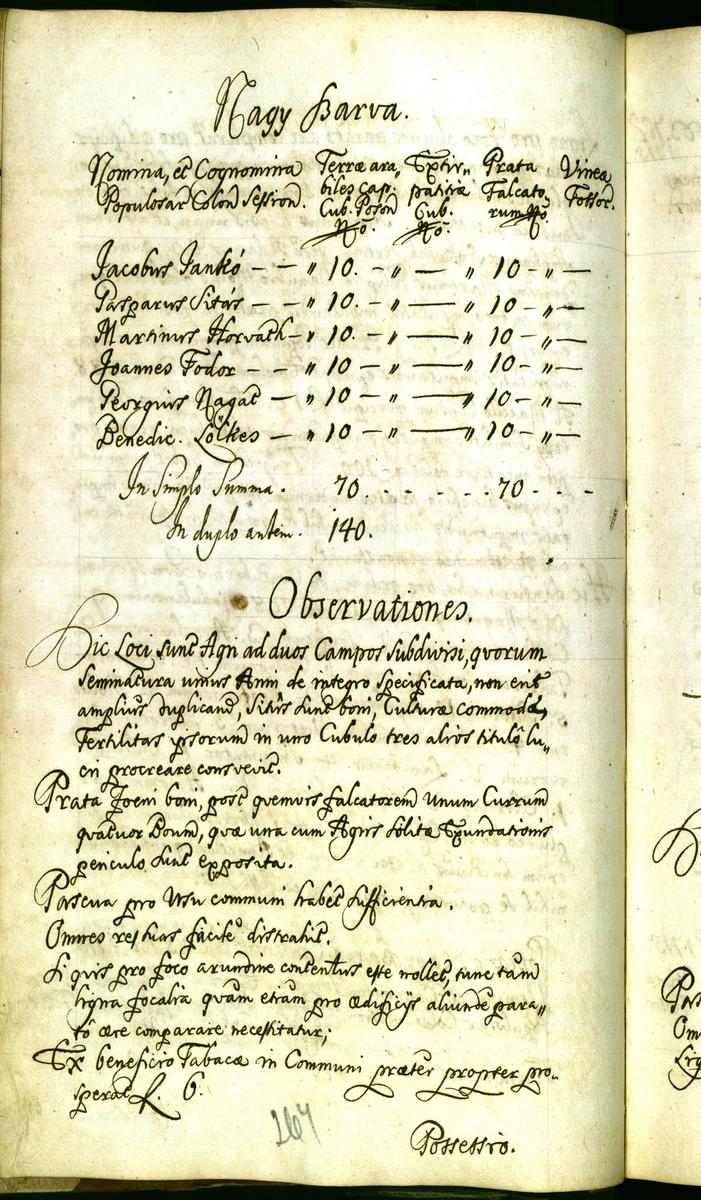 Nagy Barva.
Nomina, et Cognomina Terræ ara„ Extir„ Prata Vineæ
Populosar Colon Session. biles cap: patitiæ Falcato„ Fossor.
Cub. Poson Cub. rum No.
No. No.
Jacobus Jankó — — „ 10. — „ — „ 10 — „ —
Gasparus Sitás — — „ 10. — „ — „ 10 — „ —
Martinus Horvath — „ 10. — „ — „ 10 — „ —
Joannes Fodor — — „ 10 — „ — „ 10 — „ —
Georgius Nagat — „ 10 — „ — „ 10 — „ —
Benedic. Lölkes — „ 10 — „ — „ 10 — „ —
In Simplo Summa. 70. - - - - . . 70 - - -
In duplo autem. 140.
Observationes.
Hic Loci sunt Agri ad duos Campos subdivisi, quorum
seminatura unius Anni de integro specificata, non erit
amplius duplicand, sitûs sunt boni, Culturæ commodæ,
Fertilitas ipsorum in uno Cubulo tres alios titulô lu„
cri procreare consvevit.
Prata foeni boni, post quemvis falcatorem unum Currum
quatuor Boum, quæ una cum Agris solitæ Exundationis
periculo sunt exposita.
Pascua pro Usu communi habet sufficientia.
Omnes res suas facile distrahit.
Si quis pro foco arundine contentus esse nollet, tunc tam
ligna focalia quam etiam pro ædificijs aliunde para„
tô ære comparare necessitatur;
Ex beneficio Tabacæ in Communi præter propter pro„
sperat f. 6.
267
Possessio.